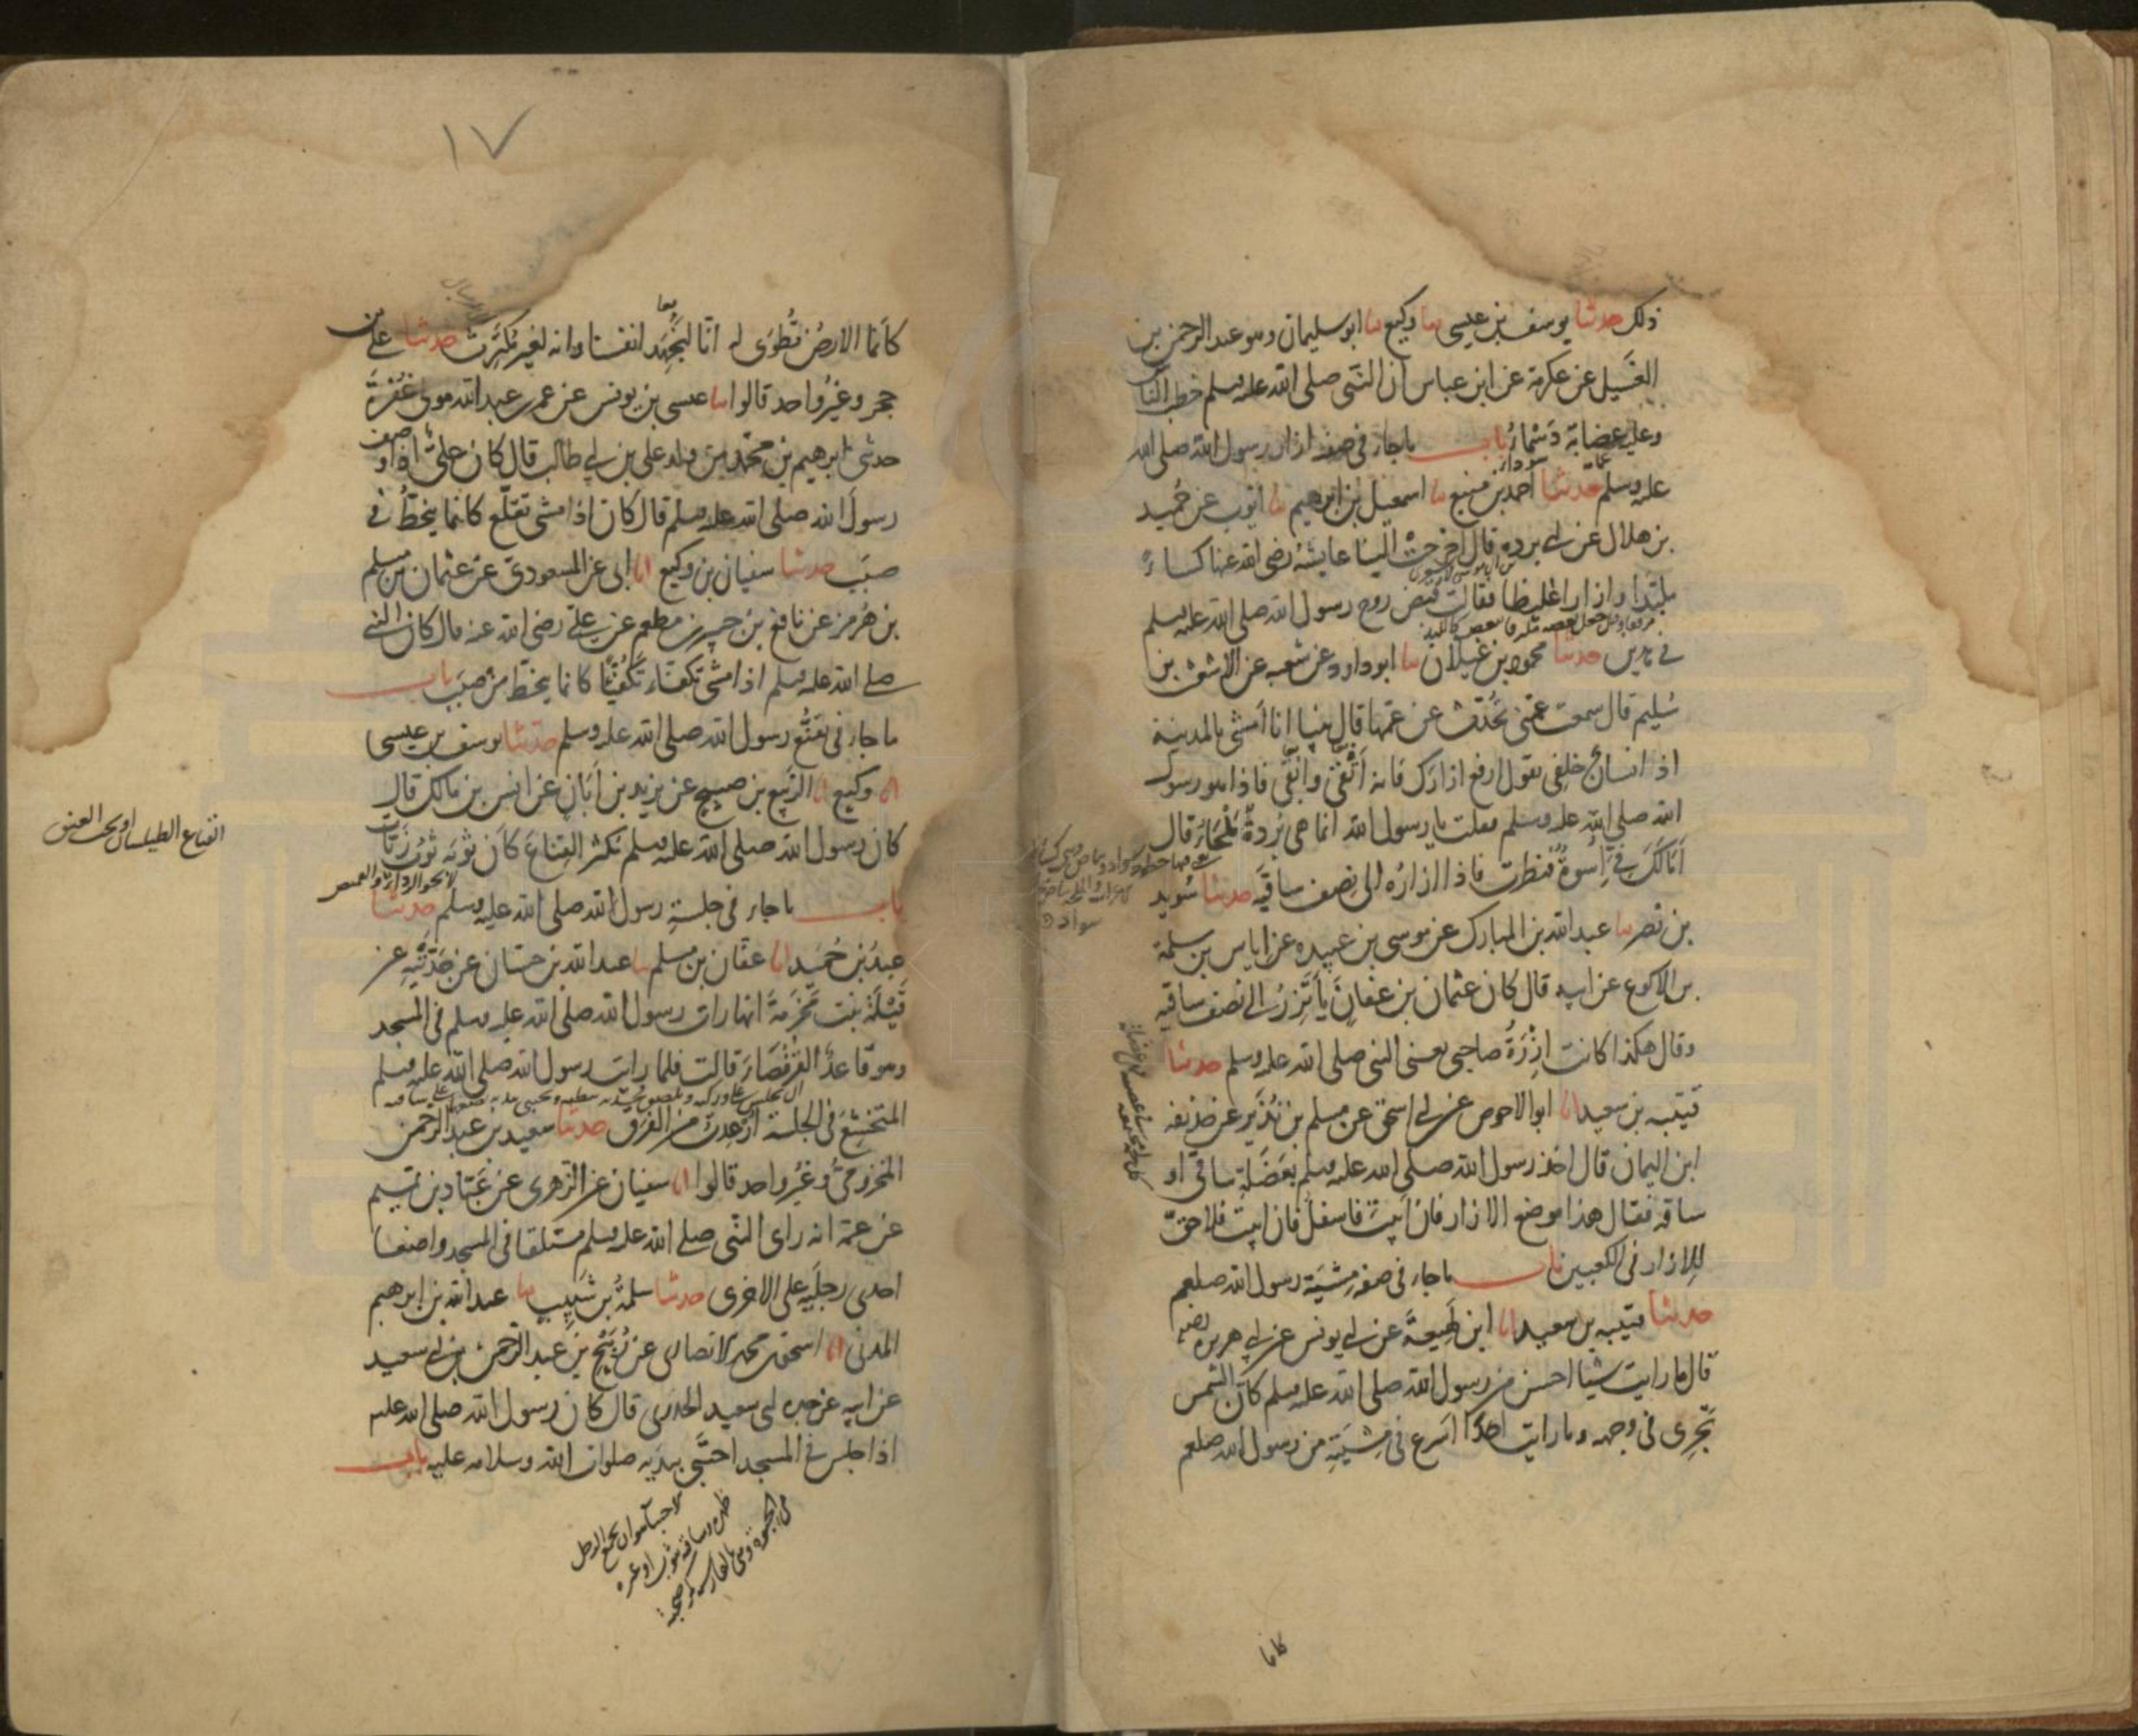 ذلك حدثنا يوسف بن عيسى نا وكيع نا ابو سليمان وهو عبد الرحمن بن
الغسيل عن عكرمة عن ابن عباس ان النبى صلى الله عليه وسلم خطب الناس
وعليه عصابة دسماء باب ما جاء فى صفة ازار رسول الله صلى الله
عليه وسلم حدثنا احمد بن منيع نا اسمعيل بن ابرهيم نا ايوب عن حميد
بن هلال عن ابى بردة قال اخرجت الينا عايشة رضى الله عنها كساءً
ملبدا وازارا غليظا فقالت قبض روح رسول الله صلى الله عليه وسلم
فى هذين حدثنا محمود بن غيلان نا ابو داود عن شعبه عن الاشعث بن
سُليم قال سمعت عمتى تحدّث عن عمها قال بينا انا امشى بالمدينة
اذ انسان خلفى يقول ارفع ازارك فانه اتقى وانقى فاذا هو رسول
الله صلى الله عليه وسلم فقلت يا رسول الله انما هى بُردةٌ مَلْحَاءُ قال
اَمَا لَكَ فِىَّ اُسوةٌ فنظرت فاذا ازارُه الى نصف ساقَيه حدثنا سُويد
بن نصر نا عبد الله بن المبارك عن موسى بن عبيده عن اياس بن سلمة
بن الاكوع عن ابيه قال كان عثمان بن عفان يأتَزِرُ الى نصف ساقيه
وقال هكذا كانت اِزْرَةُ صاحبى يعنى النبى صلى الله عليه وسلم حدثنا
قتيبه بن سعيد انا ابو الاحوص عن ابى اسحق عن مسلم بن نُذَير عن حذيفه
ابن اليمان قال اخذ رسول الله صلى الله عليه وسلم بعَضَلةِ ساقى او
ساقه فقال هذا موضع الازار فان ابيت فاسفل فان ابيت فلا حقّ
للازار فى الكعبين باب ما جاء فى صفة مِشيَة رسول الله صلعم
حدثنا قتيبه بن سعيد انا ابن لهيعة عن ابى يونس عن ابى هريره
قال ما رايت شيئا احسن من رسول الله صلى الله عليه وسلم كانّ الشمس
تجرى فى وجهه وما رايت احدًا اسرع فى مِشيَتِه من رسول الله صلعم
كانما
١٧
كانما الارضُ تُطْوَى له انّا لنُجْهِدُ انفسنا وانه لغير مُكترث حدثنا على بن
حجر وغيرُ واحد قالوا نا عيسى بن يونس عن عمر بن عبد الله مولى غُفْرَة
حدثنى ابرهيم بن محمّد من ولد على بن ابى طالب قال كان علىٌّ اذا وصف
رسولَ الله صلى الله عليه وسلم قال كان اذا مشى تقلّع كانما ينحطّ فى
صبَب حدثنا سفيان بن وكيع انا ابى عن المسعودى عن عثمان بن مسلم
بن هُرمز عن نافع بن جبير بن مطعم عن على رضى الله عنه قال كان النبى
صلى الله عليه وسلم اذا مشى تكفّاء تكفُّئًا كانما ينحطّ من صبَب باب
ما جاء فى تقنُّع رسول الله صلى الله عليه وسلم حدثنا يوسف بن عيسى
انا وكيع انا الربيع بن صبيح عن يزيد بن اَبَان عن انس بن مالك قال
كان رسول الله صلى الله عليه وسلم يُكثر القِناعَ كأن ثوبَه ثوبُ زيّات
باب ما جاء فى جلسةِ رسول الله صلى الله عليه وسلم حدثنا
عبدُ بن حُمَيد انا عفّان بن مسلم نا عبد الله بن حسّان عن جَدّتَيْهِ عن
قَيْلَة بنت مَخْرَمَةَ انها رات رسول الله صلى الله عليه وسلم فى المسجد
وهو قاعدٌ القُرْفُصَاء قالت فلما رايت رسول الله صلى الله عليه وسلم
المتخشّعَ فى الجلسة اُرعدت من الفَرَق حدثنا سعيد بن عبد الرحمن
المخزومىُّ وغيرُ واحد قالوا انا سفيان عن الزهرى عن عَبّاد بن تميم
عن عمّه انه راى النبى صلى الله عليه وسلم مستلقيا فى المسجد واضعا
احدى رجلَيه على الاخرى حدثنا سلمةُ بن شَبيب نا عبد الله بن ابرهيم
المدنى انا اسحق بن محمد الانصارى عن رُبَيْح بن عبد الرّحمن بن ابى سعيد
عن ابيه عن جده ابى سعيد الخدرى قال كان رسول الله صلى الله عليه
اذا جلس فى المسجد احتَبَى بيدَيه صلوات الله وسلامه عليه باب
القناع الطيلسان او تحت العنق